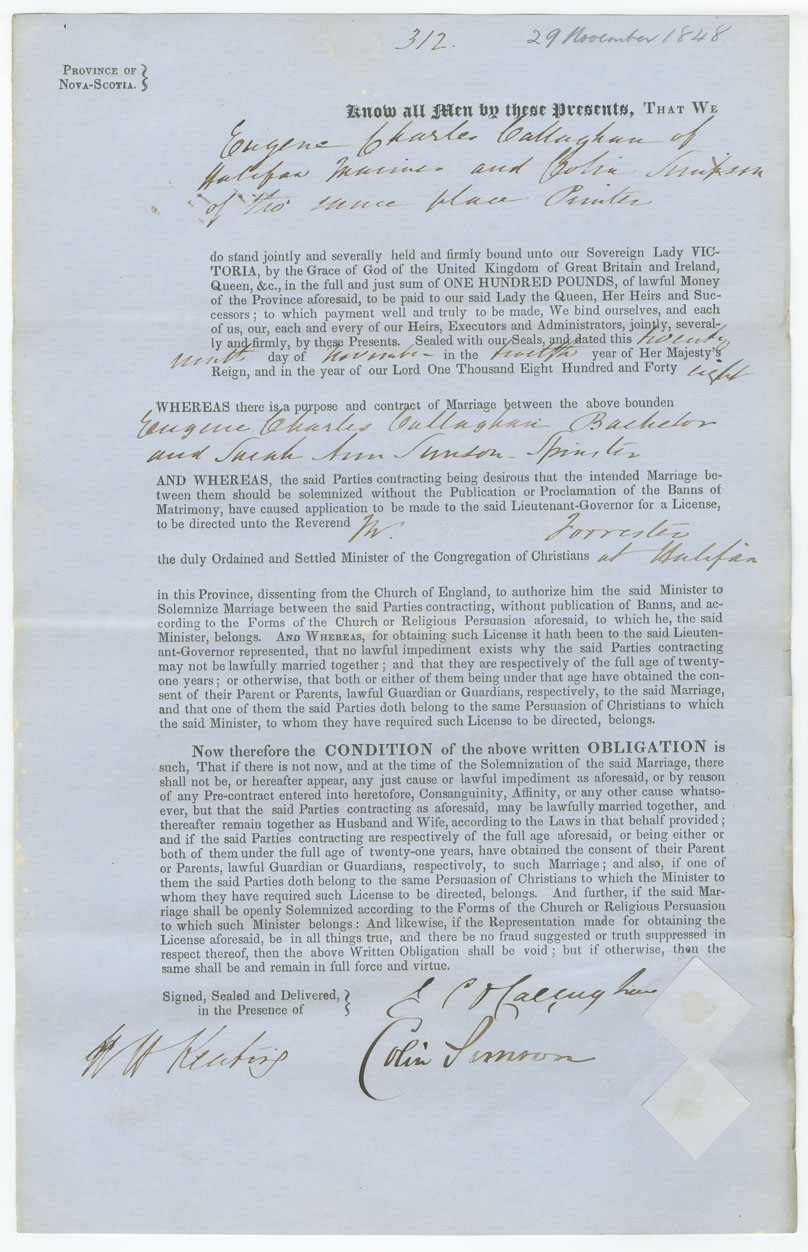 312.
29 November 1848
PROVINCE OF
NOVA-SCOTIA.
Know all Men by these Presents, THAT WE
Eugene Charles Callaghan of
Halifax and Colin Simpson
of the same place Printer
do stand jointly and severally held and firmly bound unto our Sovereign Lady VIC-
TORIA, by the Grace of God of the United Kingdom of Great Britain and Ireland,
Queen, &c., in the full and just sum of ONE HUNDRED POUNDS, of lawful Money
of the Province aforesaid, to be paid to our said Lady the Queen, Her Heirs and Suc-
cessors; to which payment well and truly to be made, We bind ourselves, and each
of us, our, each and every of our Heirs, Executors and Administrators, jointly, several-
ly and firmly, by these Presents. Sealed with our Seals, and dated this twenty
ninth day of November in the twelfth year of Her Majesty's
Reign, and in the year of our Lord One Thousand Eight Hundred and Forty eight
WHEREAS there is a purpose and contract of Marriage between the above bounden
Eugene Charles Callaghan Bachelor
and Sarah Ann Simson Spinster
AND WHEREAS, the said Parties contracting being desirous that the intended Marriage be-
tween them should be solemnized without the Publication or Proclamation of the Banns of
Matrimony, have caused application to be made to the said Lieutenant-Governor for a License,
to be directed unto the Reverend Mr. Forrester
the duly Ordained and Settled Minister of the Congregation of Christians at Halifax
in this Province, dissenting from the Church of England, to authorize him the said Minister to
Solemnize Marriage between the said Parties contracting, without publication of Banns, and ac-
cording to the Forms of the Church or Religious Persuasion aforesaid, to which he, the said
Minister, belongs. AND WHEREAS, for obtaining such License it hath been to the said Lieuten-
ant-Governor represented, that no lawful impediment exists why the said Parties contracting
may not be lawfully married together; and that they are respectively of the full age of twenty-
one years; or otherwise, that both or either of them being under that age have obtained the con-
sent of their Parent or Parents, lawful Guardian or Guardians, respectively, to the said Marriage,
and that one of them the said Parties doth belong to the same Persuasion of Christians to which
the said Minister, to whom they have required such License to be directed, belongs.
Now therefore the CONDITION of the above written OBLIGATION is
such, That if there is not now, and at the time of the Solemnization of the said Marriage, there
shall not be, or hereafter appear, any just cause or lawful impediment as aforesaid, or by reason
of any Pre-contract entered into heretofore, Consanguinity, Affinity, or any other cause whatso-
ever, but that the said Parties contracting as aforesaid, may be lawfully married together, and
thereafter remain together as Husband and Wife, according to the Laws in that behalf provided;
and if the said Parties contracting are respectively of the full age aforesaid, or being either or
both of them under the full age of twenty-one years, have obtained the consent of their Parent
or Parents, lawful Guardian or Guardians, respectively, to such Marriage; and also, if one of
them the said Parties doth belong to the same Persuasion of Christians to which the Minister to
whom they have required such License to be directed, belongs. And further, if the said Mar-
riage shall be openly Solemnized according to the Forms of the Church or Religious Persuasion
to which such Minister belongs: And likewise, if the Representation made for obtaining the
License aforesaid, be in all things true, and there be no fraud suggested or truth suppressed in
respect thereof, then the above Written Obligation shall be void; but if otherwise, then the
same shall be and remain in full force and virtue.
Signed, Sealed and Delivered,
in the Presence of
E C O'Callaghan
W H Keating
Colin Simson